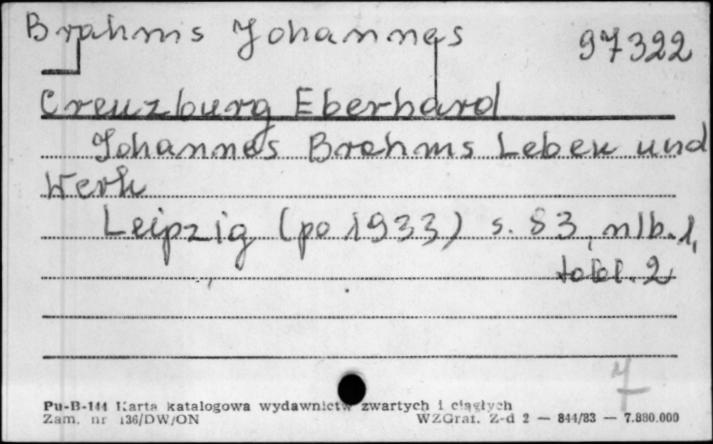 Brahms Johannes 97322
Creuzburg Eberhard
Johannes Brahms Leben und
Werk
Leipzig (po 1933) s. 83, nlb. 1,
tabl. 2
7
Pu-B-144 Karta katalogowa wydawnictw zwartych i ciągłych
Zam. nr 136/DW/ON WZGraf. Z-d 2 — 844/83 — 7.880.000